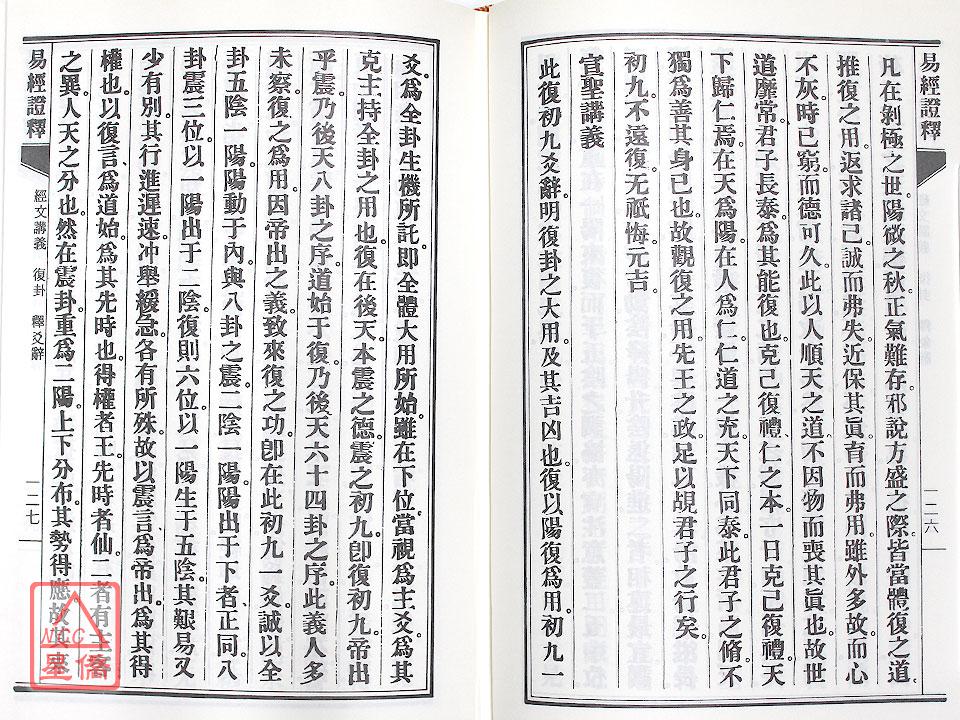 易經證釋
一二六
凡在剝極之世。陽微之秋。正氣難存。邪說方盛之際。皆當體復之道。
推復之用。返求諸己。誠而弗失。近保其眞。育而弗用。雖外多故。而心
不灰。時已窮。而德可久。此以人順天之道。不因物而喪其眞也。故世
道靡常。君子長泰。爲其能復也。克己復禮。仁之本。一日克己復禮。天
下歸仁焉。在天爲陽。在人爲仁。仁道之充。天下同泰。此君子之脩。不
獨爲善其身已也。故觀復之用。先王之政。足以覘君子之行矣。
初九。不遠復。无祇悔。元吉。
宣聖講義
此復初九爻辭。明復卦之大用。及其吉凶也。復以陽復爲用。初九一
爻。爲全卦生機所託。即全體大用所始。雖在下位。當視爲主爻。爲其
克主持全卦之用也。復在後天。本震之德。震之初九。卽復初九。帝出
乎震。乃後天八卦之序。道始于復。乃後天六十四卦之序。此義人多
未察。復之爲用。因帝出之義。致來復之功。卽在此初九一爻。誠以全
卦五陰一陽。陽動于內。與八卦之震。二陰一陽。陽出于下者。正同。八
卦震三位。以一陽出于二陰。復則六位。以一陽生于五陰。其艱易又
少有別。其行進遲速。冲舉緩急。各有所殊。故以震言。爲帝出。爲其得
權也。以復言。爲道始。爲其先時也。得權者王。先時者仙。二者有主
之異。人天之分也。然在震卦。重爲二陽。上下分布。其勢得應。故其
易經證釋
經文講義 復卦 釋爻辭
一二七
NCG
星僑